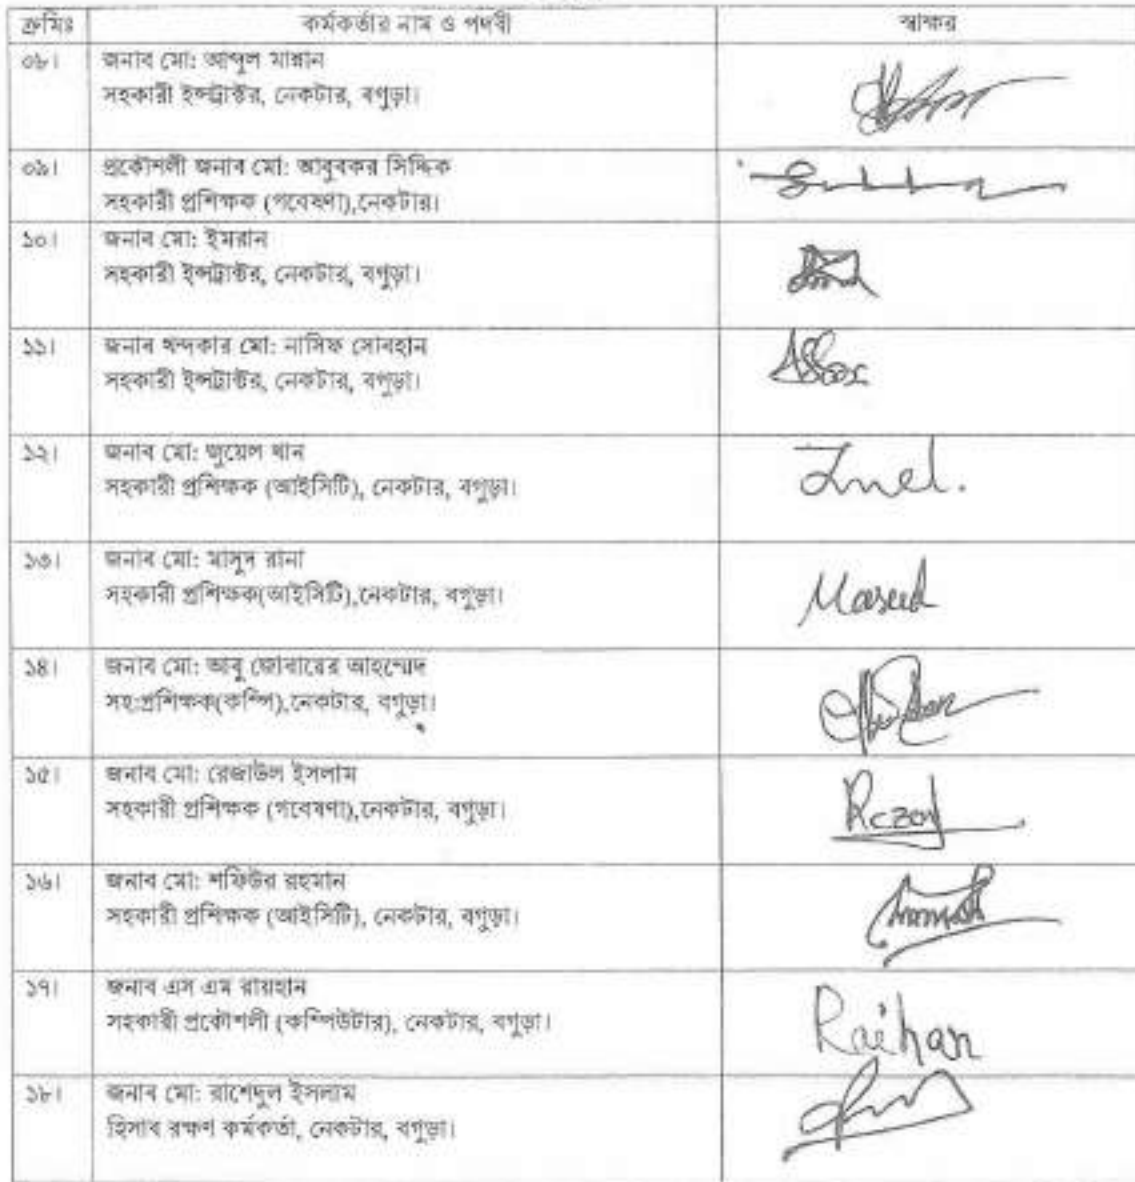 ক্রমিঃ কর্মকর্তার নাম ও পদবী স্বাক্ষর
০৮। জনাব মো: আব্দুল মান্নান
সহকারী ইন্সট্রাক্টর, নেকটার, বগুড়া।
০৯। প্রকৌশলী জনাব মো: আবুবকর সিদ্দিক
সহকারী প্রশিক্ষক (গবেষণা),নেকটার।
১০। জনাব মো: ইমরান
সহকারী ইন্সট্রাক্টর, নেকটার, বগুড়া।
১১। জনাব খন্দকার মো: নাসিফ সোবহান
সহকারী ইন্সট্রাক্টর, নেকটার, বগুড়া।
১২। জনাব মো: জুয়েল খান
সহকারী প্রশিক্ষক (আইসিটি), নেকটার, বগুড়া।
Juel.
১৩। জনাব মো: মাসুদ রানা
সহকারী প্রশিক্ষক(আইসিটি),নেকটার, বগুড়া।
Masud
১৪। জনাব মো: আবু জোবায়ের আহম্মেদ
সহ:প্রশিক্ষক(কম্পি),নেকটার, বগুড়া।
১৫। জনাব মো: রেজাউল ইসলাম
সহকারী প্রশিক্ষক (গবেষণা),নেকটার, বগুড়া।
১৬। জনাব মো: শফিউর রহমান
সহকারী প্রশিক্ষক (আইসিটি), নেকটার, বগুড়া।
১৭। জনাব এস এম রায়হান
সহকারী প্রকৌশলী (কম্পিউটার), নেকটার, বগুড়া।
Raihan
১৮। জনাব মো: রাশেদুল ইসলাম
হিসাব রক্ষণ কর্মকর্তা, নেকটার, বগুড়া।